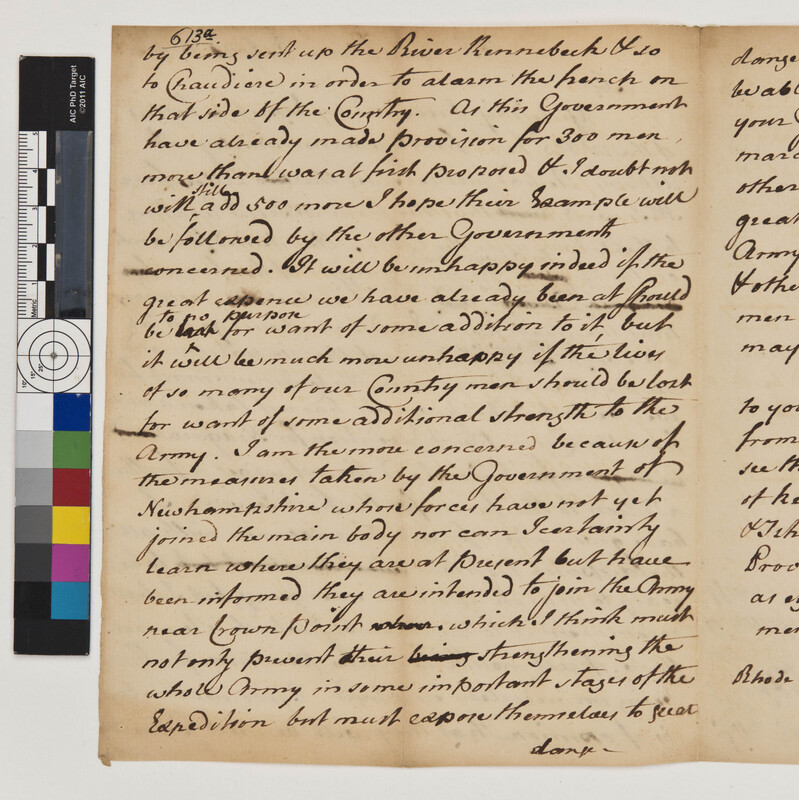 613a.
by being sent up the River Kennebeck & so
to Chaudiere in order to alarm the french on
that side of the Country. As this Government
have already made provision for 300 men
more than was at first proposed & I doubt not
will still add 500 more I hope their Example will
be followed by the other Government
concerned. It will be unhappy indeed if the
great expence we have already been at should
be to no purpose for want of some addition to it, but
it will be much more unhappy if the lives
of so many of our Country men should be lost
for want of some additional strength to the
Army. I am the more concerned because of
the measures taken by the Government of
Newhampshire whose forces have not yet
joined the main body nor can I certainly
learn where they are at present but have
been informed they are intended to join the Army
near Crown point which I think must
not only prevent their being strengthening the
whole Army in some important stages of the
Expedition but must expose themselves to great
dange-
dange
be abl
your
marc
other
great
Army
& othe
men
may
to you
from
see th
of he
Prov
as e
men
Rhode
AIC PhD Target
©2011 AIC
Metric
1
2
3
4
5
10°
15°
25°